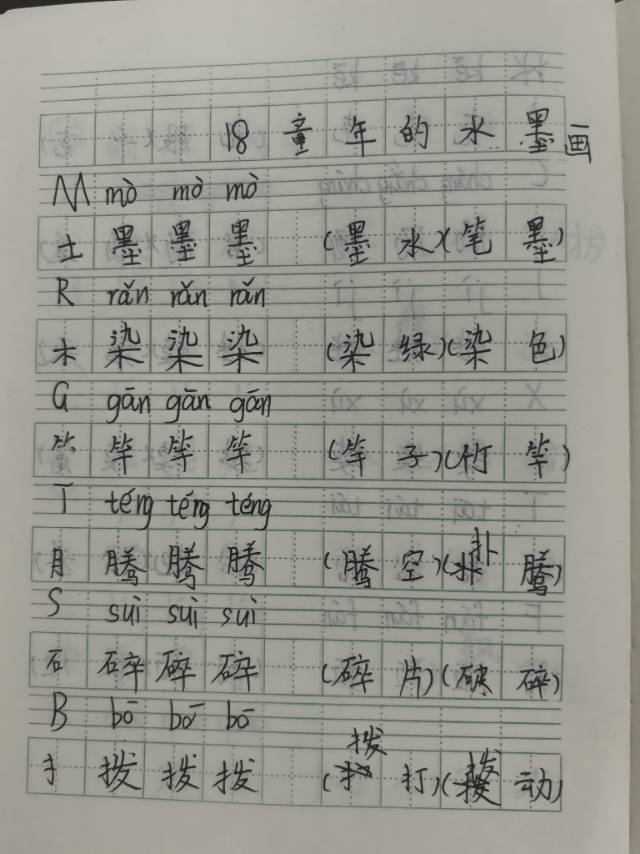 18 童年的水墨画
M mò mò mò
土 墨 墨 墨 (墨水)(笔墨)
R rǎn rǎn rǎn
木 染 染 染 (染绿)(染色)
G gān gān gān
⺮ 竿 竿 竿 (竿子)(竹竿)
T téng téng téng
月 腾 腾 腾 (腾空)(扑腾)
S suì suì suì
石 碎 碎 碎 (碎片)(破碎)
B bō bō bō
扌 拨 拨 拨 (拨打)(拨动)